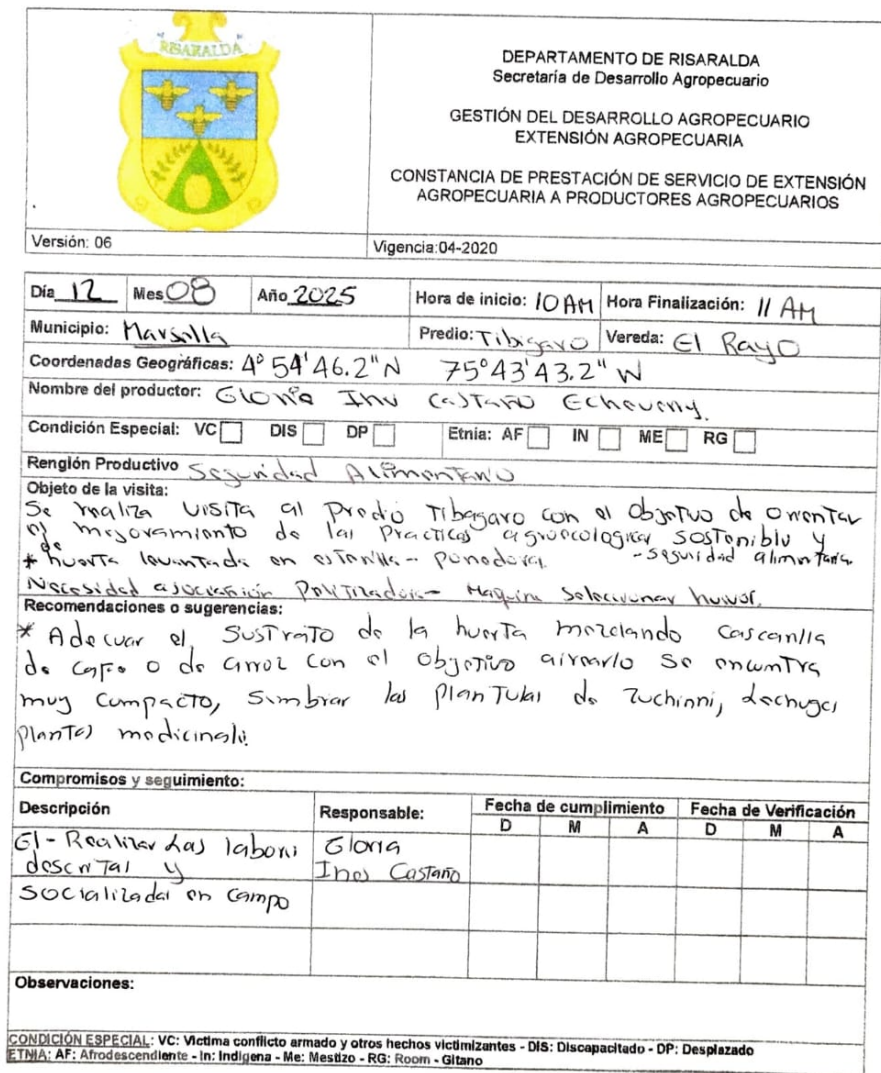 RISARALDA
DEPARTAMENTO DE RISARALDA
Secretaría de Desarrollo Agropecuario
GESTIÓN DEL DESARROLLO AGROPECUARIO
EXTENSIÓN AGROPECUARIA
CONSTANCIA DE PRESTACIÓN DE SERVICIO DE EXTENSIÓN
AGROPECUARIA A PRODUCTORES AGROPECUARIOS
Versión: 06 Vigencia:04-2020
Día 12 Mes 08 Año 2025 Hora de inicio: 10 AM Hora Finalización: 11 AM
Municipio: Marsella Predio: Tibigaro Vereda: El Rayo
Coordenadas Geográficas: 4° 54' 46.2" N 75° 43' 43.2" W
Nombre del productor: Gloria Ines Castaño Echeverry.
Condición Especial: VC DIS DP Etnia: AF IN ME RG
Renglón Productivo Seguridad Alimentaria
Objeto de la visita:
Se realiza visita al Predio Tibagaro con el Objetivo de orientar
el mejoramiento de las Practicas agroecologicas sostenible y
de - seguridad alimentaria
* huerta levantada en esterilla - ponedoras
Necesidad asociación - Maquina Seleccionar huevos.
Recomendaciones o sugerencias:
* Adecuar el sustrato de la huerta mezclando cascarilla
de cafe o de arroz con el objetivo airearlo se encuentra
muy compacto, Sembrar las Plantulas de Zuchinni, Lechugas
Plantas medicinales.
Compromisos y seguimiento:
Descripción Responsable: Fecha de cumplimiento Fecha de Verificación
D M A D M A
El - Realizar Las labores Gloria
descritas y Ines Castaño
socializadas en campo
Observaciones:
CONDICIÓN ESPECIAL: VC: Victima conflicto armado y otros hechos victimizantes - DIS: Discapacitado - DP: Desplazado
ETNIA: AF: Afrodescendiente - In: Indígena - Me: Mestizo - RG: Room - Gitano